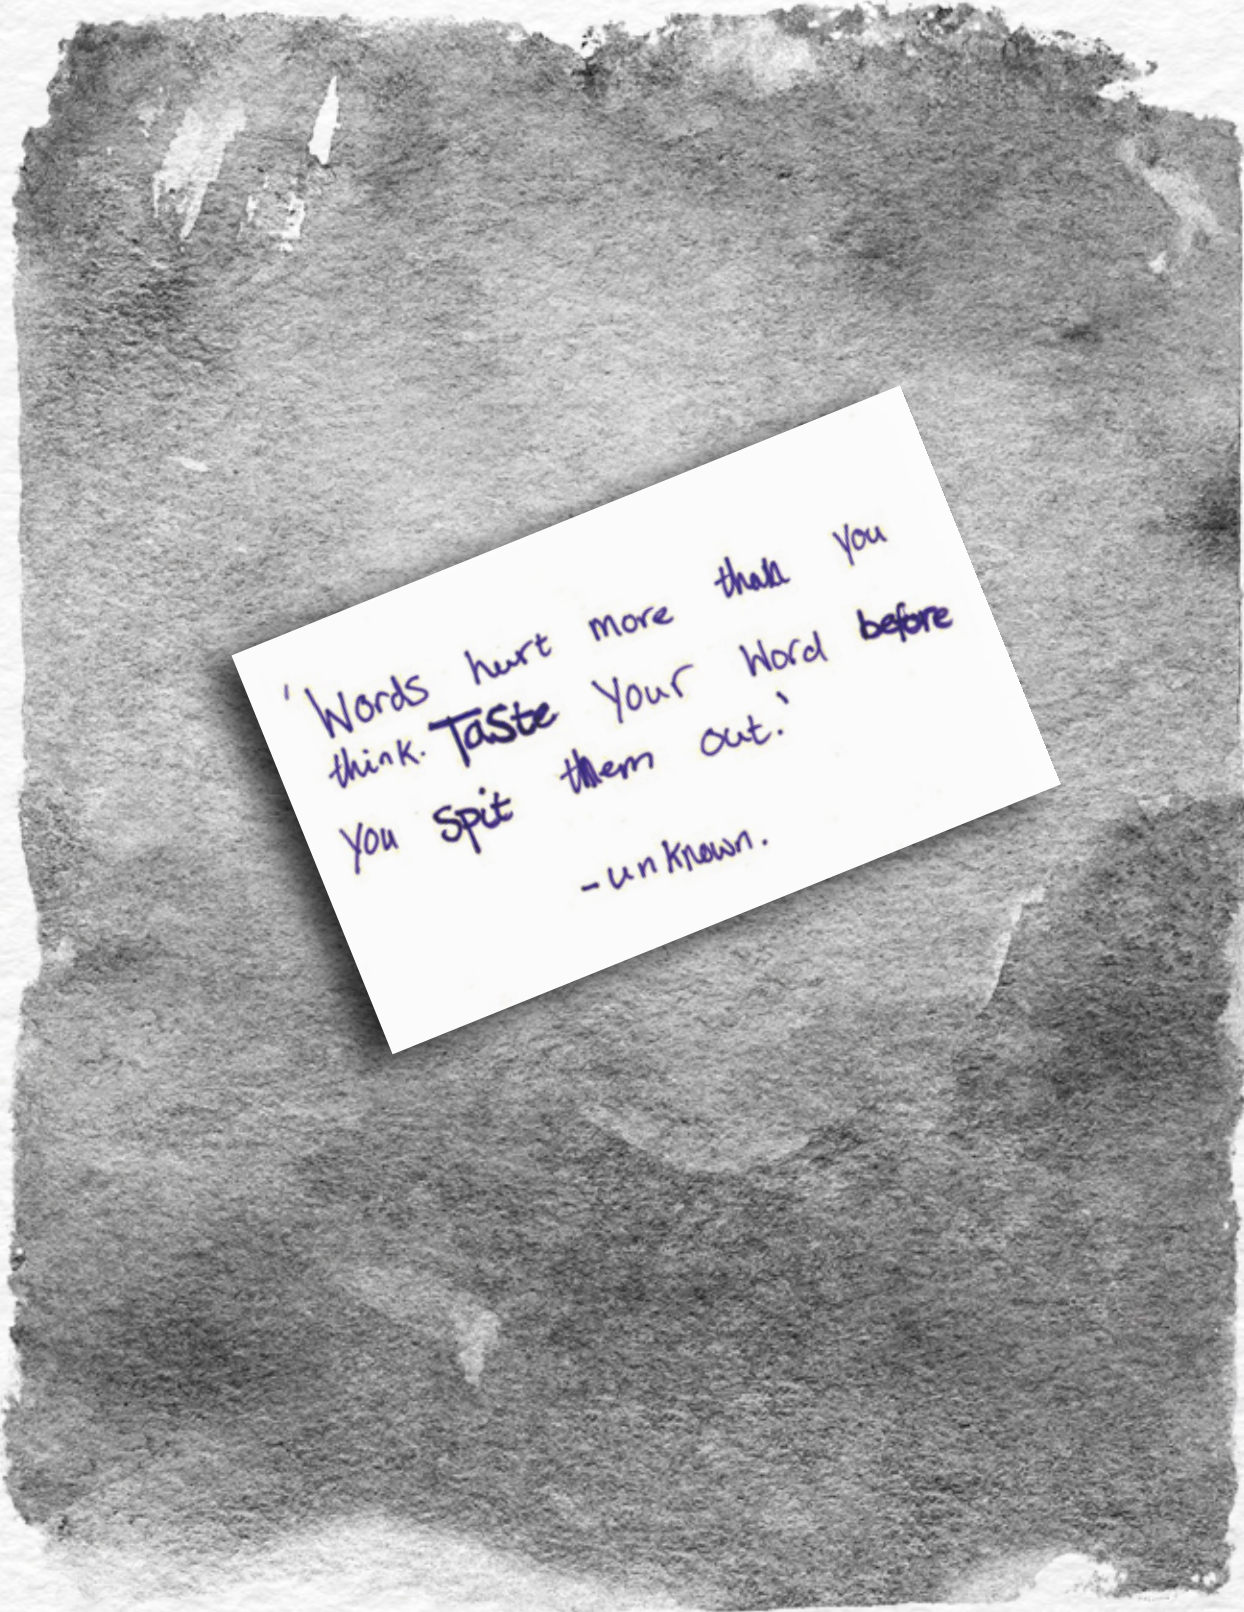 'Words hurt more than you
think. Taste your word before
you spit them out.'
-unknown.